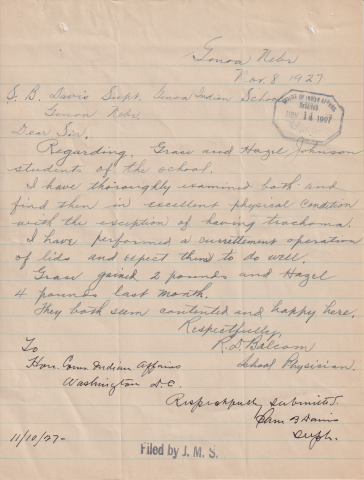 Genoa Nebr
Nov. 8 1927
S. B. Davis Supt. Genoa Indian School
Genoa Nebr.
OFFICE OF INDIAN AFFAIRS
RECEIVED
NOV 14 1927
Dear Sir.
Regarding, Grace and Hazel Johnson
students of the school.
I have thoroughly examined both and
find them in excellent physical condition
with the exception of having trachoma.
I have performed a currettement operation
of lids and expect them to do well.
Grace gained 2 pounds and Hazel
4 pounds last month.
They both seem contented and happy here.
Respectfully,
R. D. Balcom
School Physician.
To
Hon. Comr. Indian Affairs
Washington D.C.
Respectfully submitted.
Sam B Davis
Supt.
11/10/27-
Filed by J. M. S.